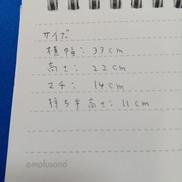 サイズ
横幅：33cm
高さ：22cm
マチ：14cm
持ち手高さ：11cm
@mofusand